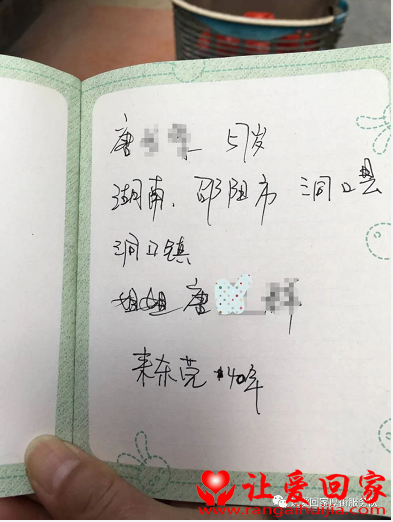 唐 57岁
湖南. 邵阳市 洞口县
洞口镇
姐姐 唐
来东莞 40年
让爱回家
rangaihuijia.com